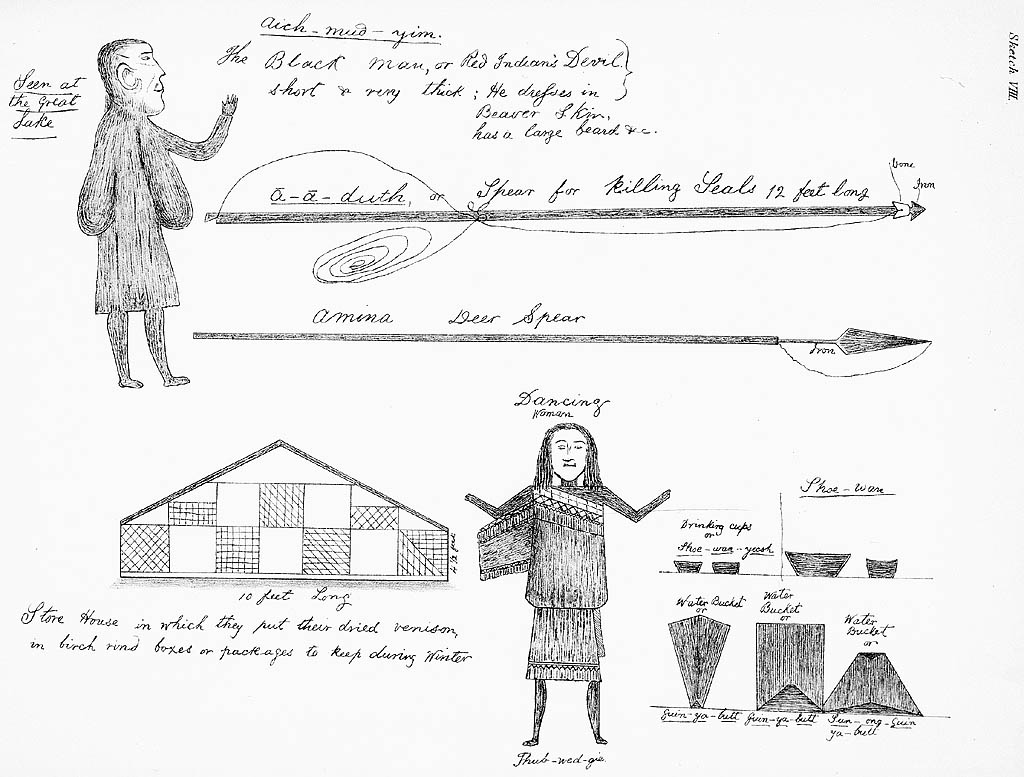 Sketch VIII.
Aich-mud-yim.
The Black Man, or Red Indian's Devil.
short & very thick; He dresses in
Beaver Skin,
has a large beard &c.
Seen at
the Great
Lake
ā-ā-duth, or Spear for Killing Seals 12 feet long
bone
Iron
Amina Deer Spear
Iron
Dancing
Woman
10 feet Long
Store House in which they put their dried venison,
in birch rind boxes or packages to keep during Winter
Thub-wed-gie.
Shoe-wan
Drinking cups
or
Shoe-wan-yeesh
Water Bucket
or
Guin-ya-butt
Water
Bucket
or
Guin-ya-butt
Water
Bucket
or
Sun-ong-guin
ya-butt